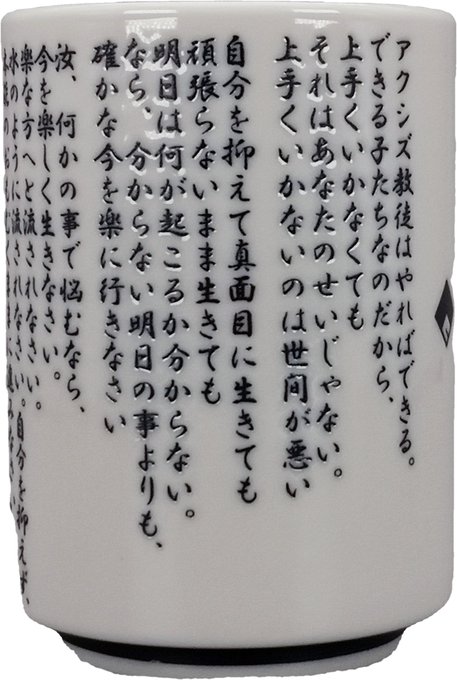 アクシズ教徒はやればできる。
できる子たちなのだから、
上手くいかなくても
それはあなたのせいじゃない。
上手くいかないのは世間が悪い
自分を抑えて真面目に生きても
頑張らないまま生きても
明日は何が起こるか分からない。
なら、分からない明日の事よりも、
確かな今を楽に行きなさい
汝、何かの事で悩むなら、
今を楽しく生きなさい。
楽な方へと流されなさい。
水のように流されなさい。自分を抑えず、